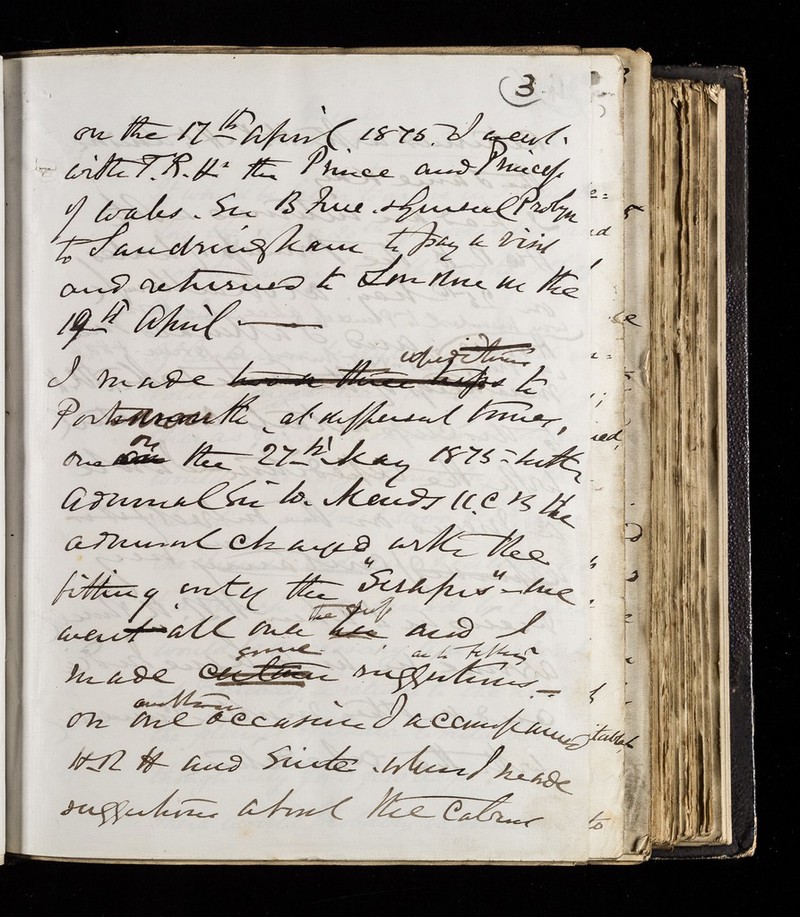 3
on the 17th April 1875. I went
with T.R.H.s the Prince and Princess
of Wales. Sir B Frere & General Probyn
to Sandringham to pay a visit
and returned to London on the
19th April —
expeditions
I made two or three trips to
Portsmouth at different times,
one on the 27th May 1875 with
on
Admiral Sir W. Mends K.C.B the
admiral charged with the
fitting out of the "Serapis" - we
the ship
went all over her and I
some as to fittings
made certain suggestions -
another
on one occasion I accompanied
H.R.H and Suite. when I made
suggestions about the Cabins